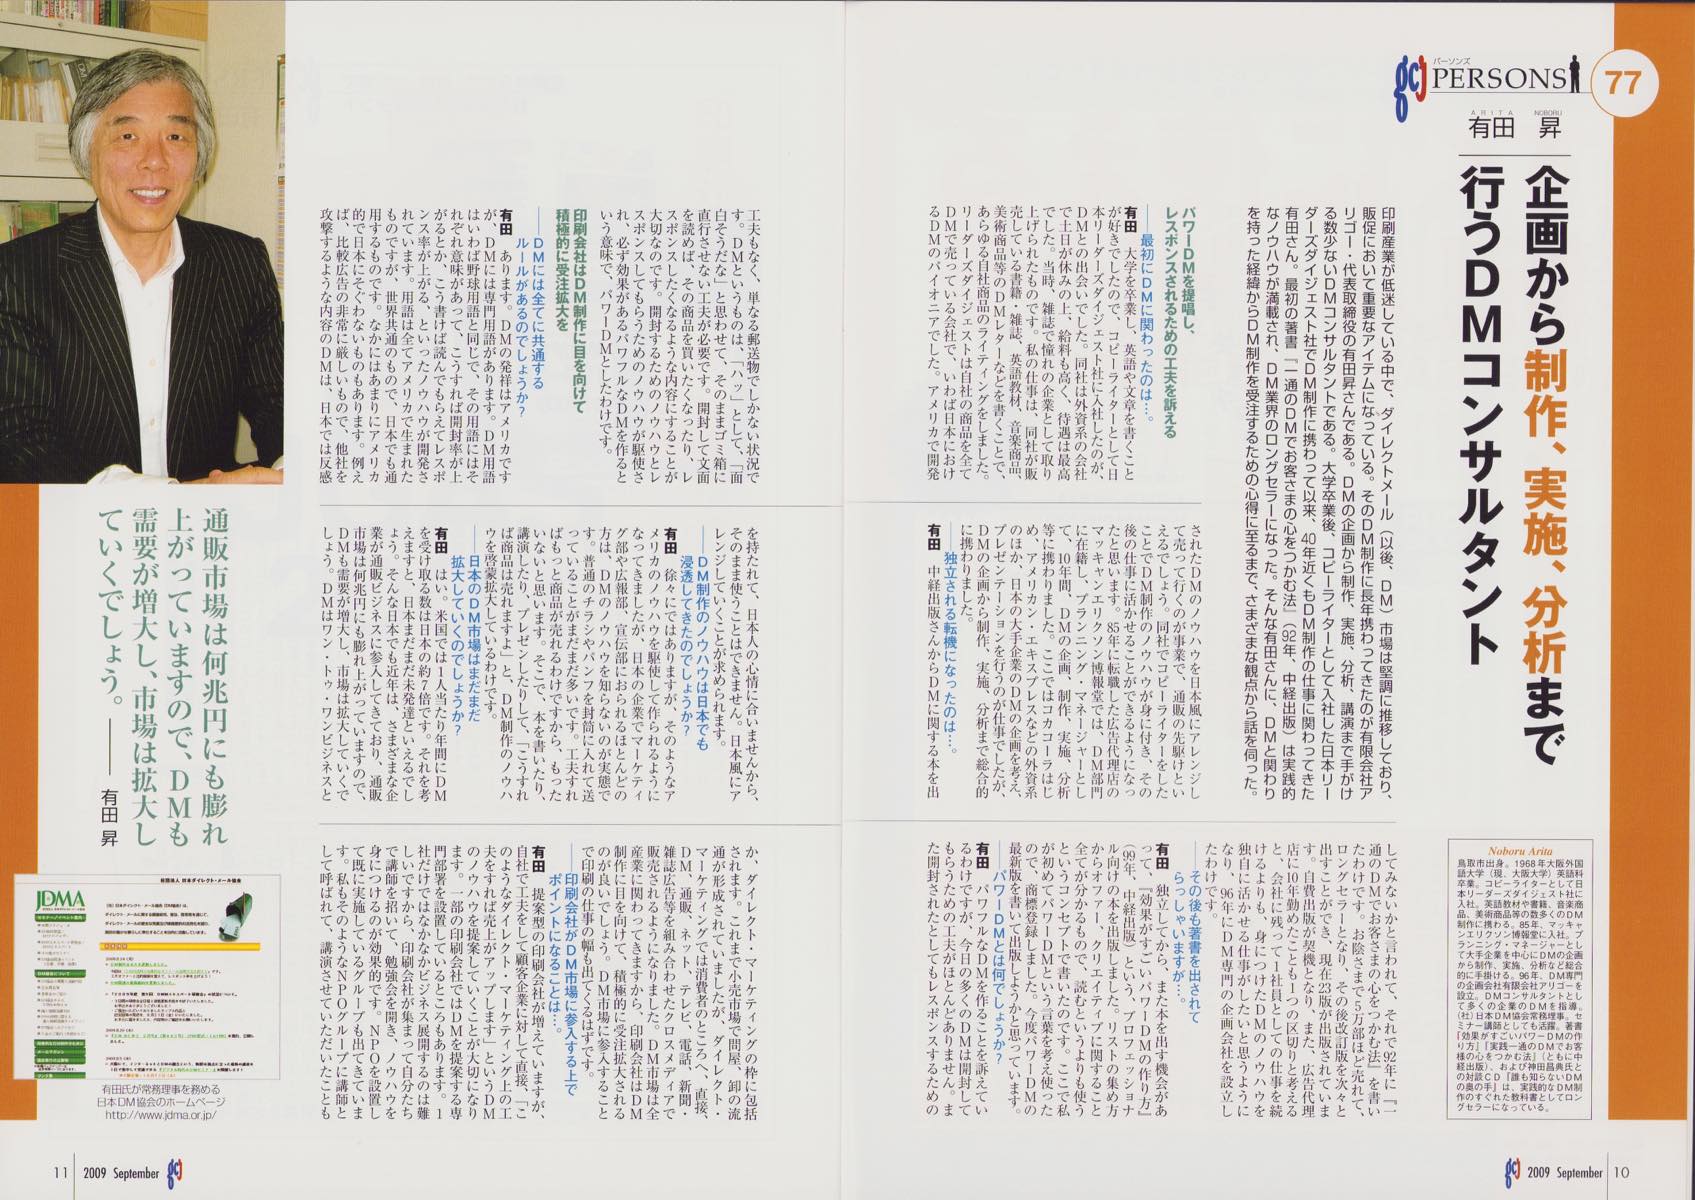 gcj
パーソンズ
PERSONS
77
ARITA NOBORU
有田 昇
企画から制作、実施、分析まで
行うDMコンサルタント
印刷産業が低迷している中で、ダイレクトメール（以後、DM）市場は堅調に推移しており、
販促において重要なアイテムになっている。そのDM制作に長年携わってきたのが有限会社ア
リゴー・代表取締役の有田昇さんである。DMの企画から制作、実施、分析、講演まで手がけ
る数少ないDMコンサルタントである。大学卒業後、コピーライターとして入社した日本リー
ダーズダイジェスト社でDM制作に携わって以来、40年近くもDM制作の仕事に関わってきた
有田さん。最初の著書『一通のDMでお客さまの心をつかむ法』（92年、中経出版）は実践的
なノウハウが満載され、DM業界のロングセラーになった。そんな有田さんに、DMと関わり
を持った経緯からDM制作を受注するための心得に至るまで、さまざまな観点から話を伺った。
パワーDMを提唱し、
レスポンスされるための工夫を訴える
――最初にDMに関わったのは…。
有田 大学を卒業し、英語や文章を書くこと
が好きでしたので、コピーライターとして日
本リーダーズダイジェスト社に入社したのが、
DMとの出会いでした。同社は外資系の会社
で土日が休みの上、給料も高く、待遇は最高
でした。当時、雑誌で憧れの企業として取り
上げられたものです。私の仕事は、同社が販
売している書籍・雑誌、英語教材、音楽商品、
美術商品等のDMレターなどを書くことで、
あらゆる自社商品のライティングをしました。
リーダーズダイジェストは自社の商品を全て
DMで売っている会社で、いわば日本におけ
るDMのパイオニアでした。アメリカで開発
されたDMのノウハウを日本風にアレンジし
て売って行くのが事業で、通販の先駆けとい
えるでしょう。同社でコピーライターをした
ことでDM制作のノウハウが身に付き、その
後の仕事に活かせることができるようになっ
たと思います。85年に転職した広告代理店の
マッキャンエリクソン博報堂では、DM部門
に在籍し、プランニング・マネージャーとし
て、10年間、DMの企画、制作、実施、分析
等に携わりました。ここではコカコーラはじ
め、アメリカン・エキスプレスなどの外資系
のほか、日本の大手企業のDMの企画を考え、
プレゼンテーションを行うのが仕事でしたが、
DMの企画から制作、実施、分析まで総合的
に携わりました。
――独立される転機になったのは…。
有田 中経出版さんからDMに関する本を出
してみないかと言われて、それで92年に『一
通のDMでお客さまの心をつかむ法』を書い
たわけです。お陰さまで5万部ほど売れて、
ロングセラーとなり、その後改訂版を次々と
出すことができ、現在23版が出版されていま
す。自費出版が契機となり、また、広告代理
店に10年勤めたことも1つの区切りと考える
と、会社に残って1社員としての仕事を続
けるよりも、身につけたDMのノウハウを
独自に活かせる仕事がしたいと思うように
なり、96年にDM専門の企画会社を設立し
たわけです。
――その後も著書を出されて
らっしゃいますが…。
有田 独立してから、また本を出す機会があ
って、『効果がすごいパワーDMの作り方』
（99年、中経出版）という、プロフェッショナ
ル向けの本を出版しました。リストの集め方
からオファー、クリエイティブに関すること
全てが分かるもので、読むというよりも使う
というコンセプトで書いたものです。ここで私
が初めてパワーDMという言葉を考え使った
ので、商標登録しました。今度パワーDMの
最新版を書いて出版しようかと思っています。
――パワーDMとは何でしょうか？
有田 パワフルなDMを作ることを訴えてい
るわけですが、今日の多くのDMは開封して
もらうための工夫がほとんどありません。ま
た開封されたとしてもレスポンスするための
Noboru Arita
鳥取市出身。1968年大阪外国
語大学（現、大阪大学）英語科
卒業。コピーライターとして日
本リーダーズダイジェスト社に
入社。英語教材や書籍、音楽商
品、美術商品等の数多くのDM
制作に携わる。85年、マッキャ
ンエリクソン博報堂に入社。プ
ランニング・マネージャーとし
て大手企業を中心にDMの企画
から制作、実施、分析など総合
的に手掛ける。96年、DM専門
の企画会社有限会社アリゴーを
設立。DMコンサルタントとし
て多くの企業のDMを指導。
（社）日本DM協会常務理事。セ
ミナー講師としても活躍。著書
『効果がすごいパワーDMの作
り方』『実践一通のDMでお客
様の心をつかむ法』（ともに中
経出版）、および神田昌典氏と
の対談CD『誰も知らないDM
の奥の手』は、実践的なDM制
作のすぐれた教科書としてロン
グセラーになっている。
gcj 2009 September 10
工夫もなく、単なる郵送物でしかない状況で
す。DMというものは、「ハッ」として、「面
白そうだな」と思わせて、そのままゴミ箱に
直行させない工夫が必要です。開封して文面
を読めば、その商品を買いたくなったり、レ
スポンスしたくなるような内容にすることが
大切なのです。開封するためのノウハウとレ
スポンスしてもらうためのノウハウが駆使さ
れ、必ず効果があるパワフルなDMを作ると
いう意味で、パワーDMとしたわけです。
印刷会社はDM制作に目を向けて
積極的に受注拡大を
――DMには全てに共通する
ルールがあるのでしょうか？
有田 あります。DMの発祥はアメリカです
が、DMには専門用語があります。DM用語
はいわば野球用語と同じで、その用語にはそ
れぞれ意味があって、こうすれば開封率が上
がるとか、こう書けば読んでもらえてレスポ
ンス率が上がる、といったノウハウが開発さ
れています。用語は全てアメリカで生まれた
ものですが、世界共通のもので、日本でも通
用するものです。なかにはあまりにアメリカ
的で日本にそぐわないものもあります。例え
ば、比較広告の非常に厳しいもので、他社を
攻撃するような内容のDMは、日本では反感
を持たれて、日本人の心情に合いませんから、
そのまま使うことはできません。日本風にア
レンジしていくことが求められます。
――DM制作のノウハウは日本でも
浸透してきたのでしょうか？
有田 徐々にではありますが、そのようなア
メリカのノウハウを駆使して作られるように
なってきましたが、日本の企業でマーケティ
グ部や広報部、宣伝部におられるほとんどの
方は、DMのノウハウを知らないのが実態で
す。普通のチラシやパンフを封筒に入れて送
っていることがまだまだ多いです。工夫すれ
ばもっと商品が売れるわけですから、もった
いないと思います。そこで、本を書いたり、
講演したり、プレゼンしたりして、「こうすれ
ば商品は売れますよ」と、DM制作のノウハ
ウを啓蒙拡大しているわけです。
――日本のDM市場はまだまだ
拡大していくのでしょうか？
有田 はい。米国では1人当たり年間にDM
を受け取る数は日本の約7倍です。それを考
えますと、日本まだまだ未発達といえるでし
ょう。そんな日本でも近年は、さまざまな企
業が通販ビジネスに参入してきており、通販
市場は何兆円にも膨れ上がっていますので、
DMも需要が増大し、市場は拡大していくで
しょう。DMはワン・トゥ・ワンビジネスと
か、ダイレクト・マーケティングの枠に包括
されます。これまで小売市場で問屋、卸の流
通が形成されていましたが、ダイレクト・
マーケティングでは消費者のところへ、直接、
DM、通販、ネット、テレビ、電話、新聞・
雑誌広告等を組み合わせたクロスメディアで
販売されるようになりました。DM市場は全
産業に関わってきますから、印刷会社はDM
制作に目を向けて、積極的に受注拡大される
のが良いでしょう。DM市場に参入すること
で印刷の仕事の幅も出てくるはずです。
――印刷会社がDM市場に参入する上で
ポイントになることは…。
有田 提案型の印刷会社が増えていますが、
自社で工夫をして顧客企業に対して直接、「こ
のようなダイレクト・マーケティング上の工
夫をすれば売上がアップします」というDM
のノウハウを提案していくことが大切になり
ます。一部の印刷会社ではDMを提案する専
門部署を設置しているところもあります。1
社だけではなかなかビジネス展開するのは難
しいですから、印刷会社が集まって自分たち
で講師を招いて、勉強会を開き、ノウハウを
身につけるのが効果的です。NPOを設置し
て既に実施しているグループも出てきていま
す。私もそのようなNPOグループに講師と
して呼ばれて、講演させていただいたことも
通販市場は何兆円にも膨れ
上がっていますので、DMも
需要が増大し、市場は拡大し
ていくでしょう。
――有田 昇
社団法人 日本ダイレクト・メール協会
JDMA
有田氏が常務理事を務める
日本DM協会のホームページ
http://www.jdma.or.jp/
11 2009 September gcj